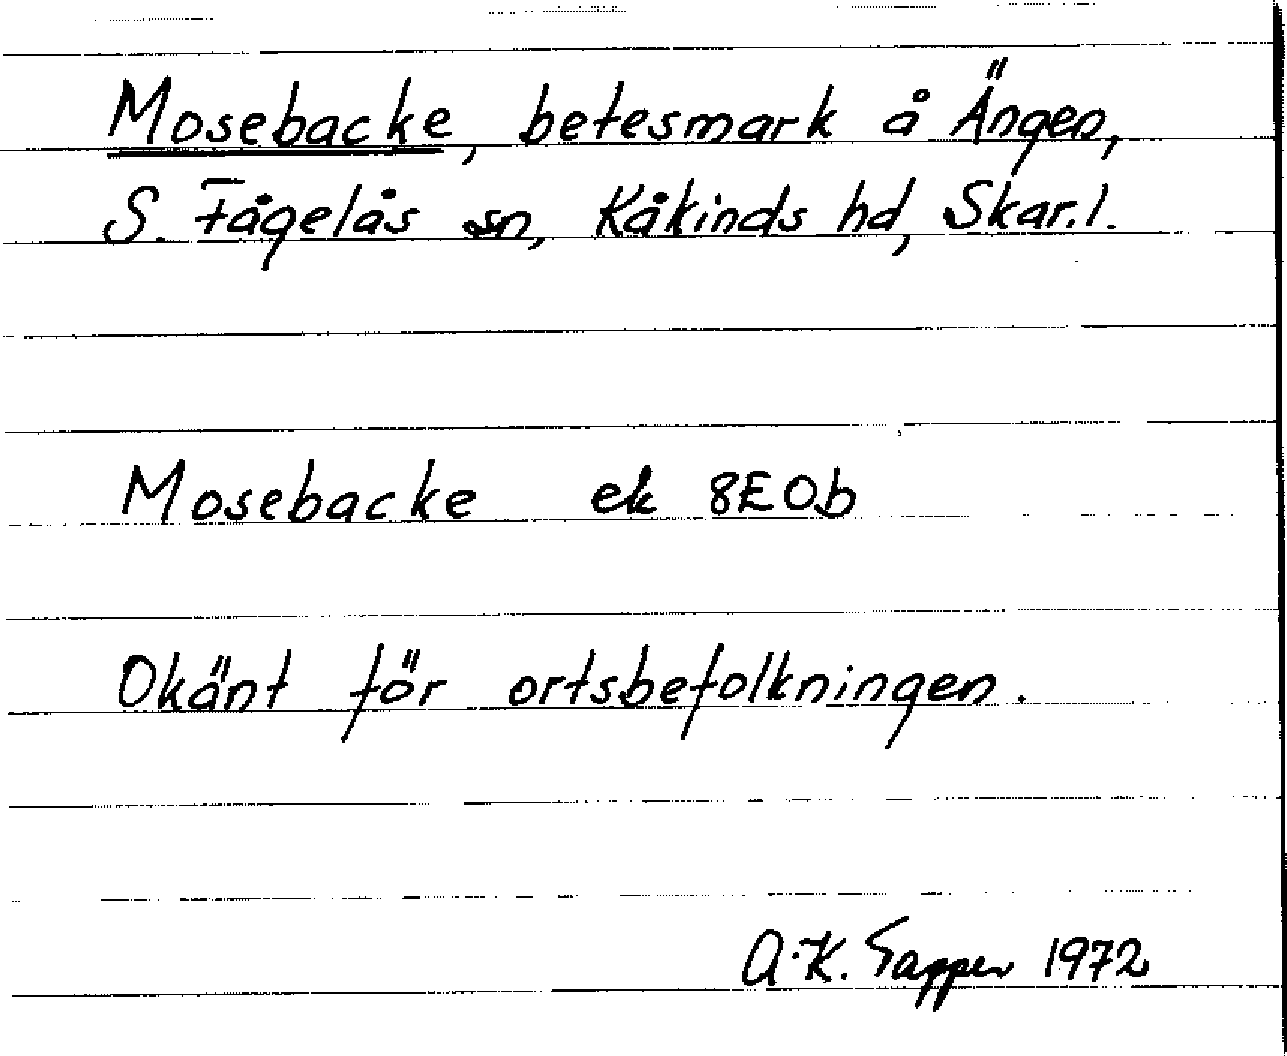 Mosebacke, betesmark å Ängen,
S. Fågelås sn, Kåkinds hd, Skar.l.
Mosebacke ek 8E0b
Okänt för ortsbefolkningen.
A-K. Sapper 1972